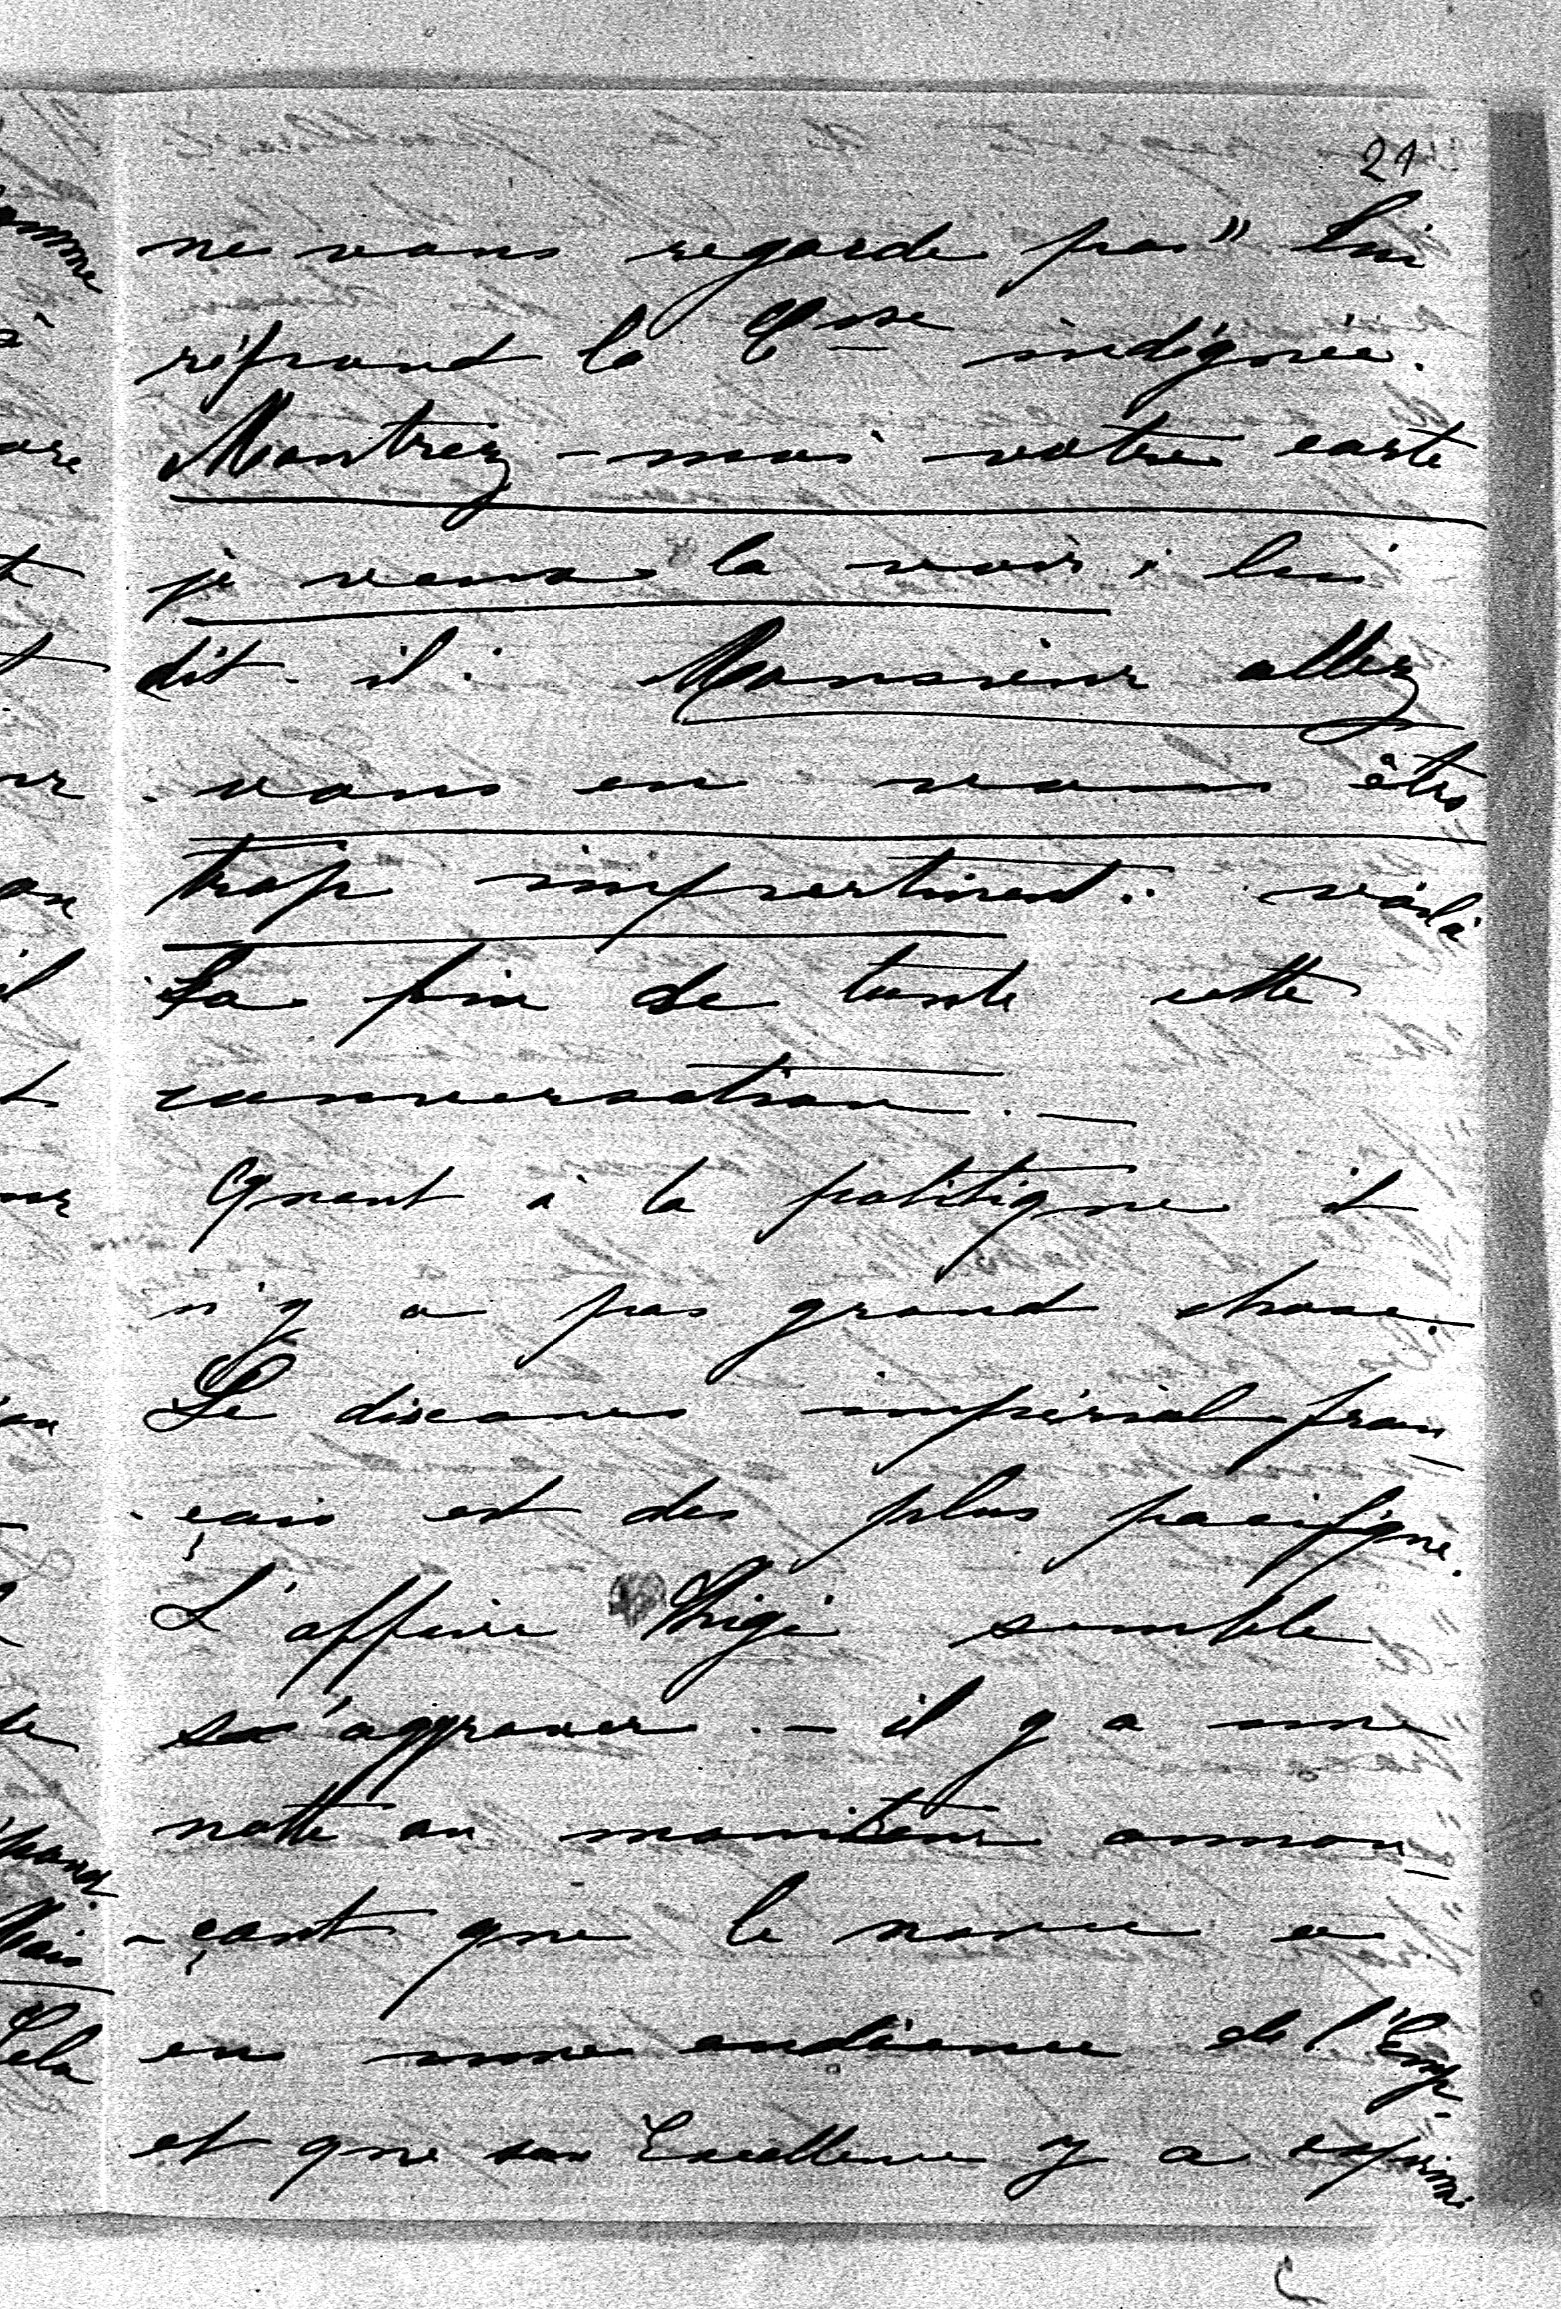 21
ne vous regarde pas" lui
répond la Csse indignée.
Montrez-moi votre carte
je veux la voir; lui
dit-il. Monsieur allez
vous en vous êtes
trop impertinent. voilà
la fin de toute cette
conversation. —
Quant à la politique il
n'y a pas grand chose.
Le discours impérial fran-
-çais est des plus pacifique.
L'affaire Chigi semble
s'aggraver. — il y a une
notte au moniteur annon-
-çant que le nonce a
eu une audience de l'Emp.
et que son Excellence y a exprimé